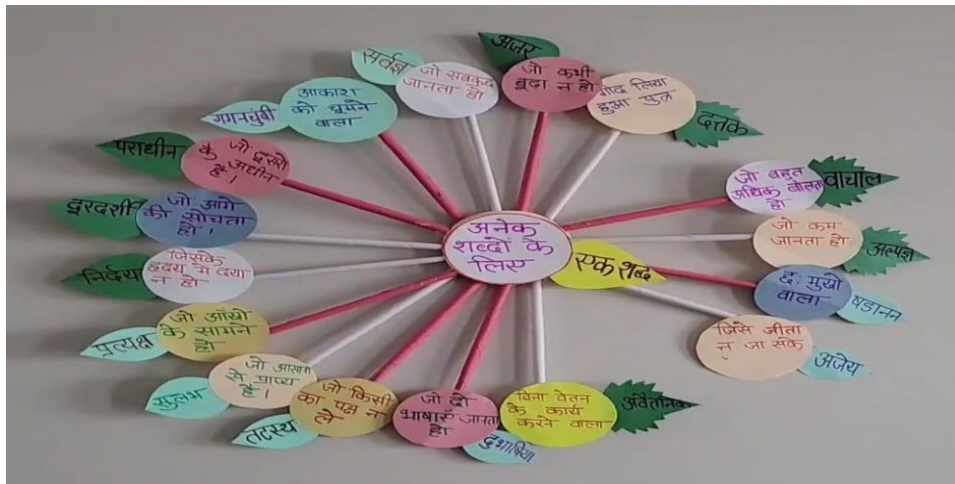 अनेक
शब्दों के
लिए
एक शब्द
जो कभी
बूढ़ा न हो
अजर
गोद लिया
हुआ पुत्र
दत्तक
जो बहुत
अधिक बोलता
हो
वाचाल
जो कम
जानता हो
अल्पज्ञ
छः मुखों
वाला
षडानन
जिसे जीता
न जा सके
अजेय
बिना वेतन
के कार्य
करने वाला
अवैतनिक
जो दो
भाषाएँ जानता
हो
दुभाषिया
जो किसी
का पक्ष न
ले
तटस्थ
जो आसानी
से प्राप्य
है।
सुलभ
जो आँखों
के सामने
हो
प्रत्यक्ष
जिसके
हृदय मे दया
न हो
निर्दय
जो आगे
की सोचता
हो।
दूरदर्शी
जो दूसरों
के अधीन
है।
पराधीन
आकाश
को चूमने
वाला
गगनचुंबी
जो सबकुछ
जानता हो
सर्वज्ञ